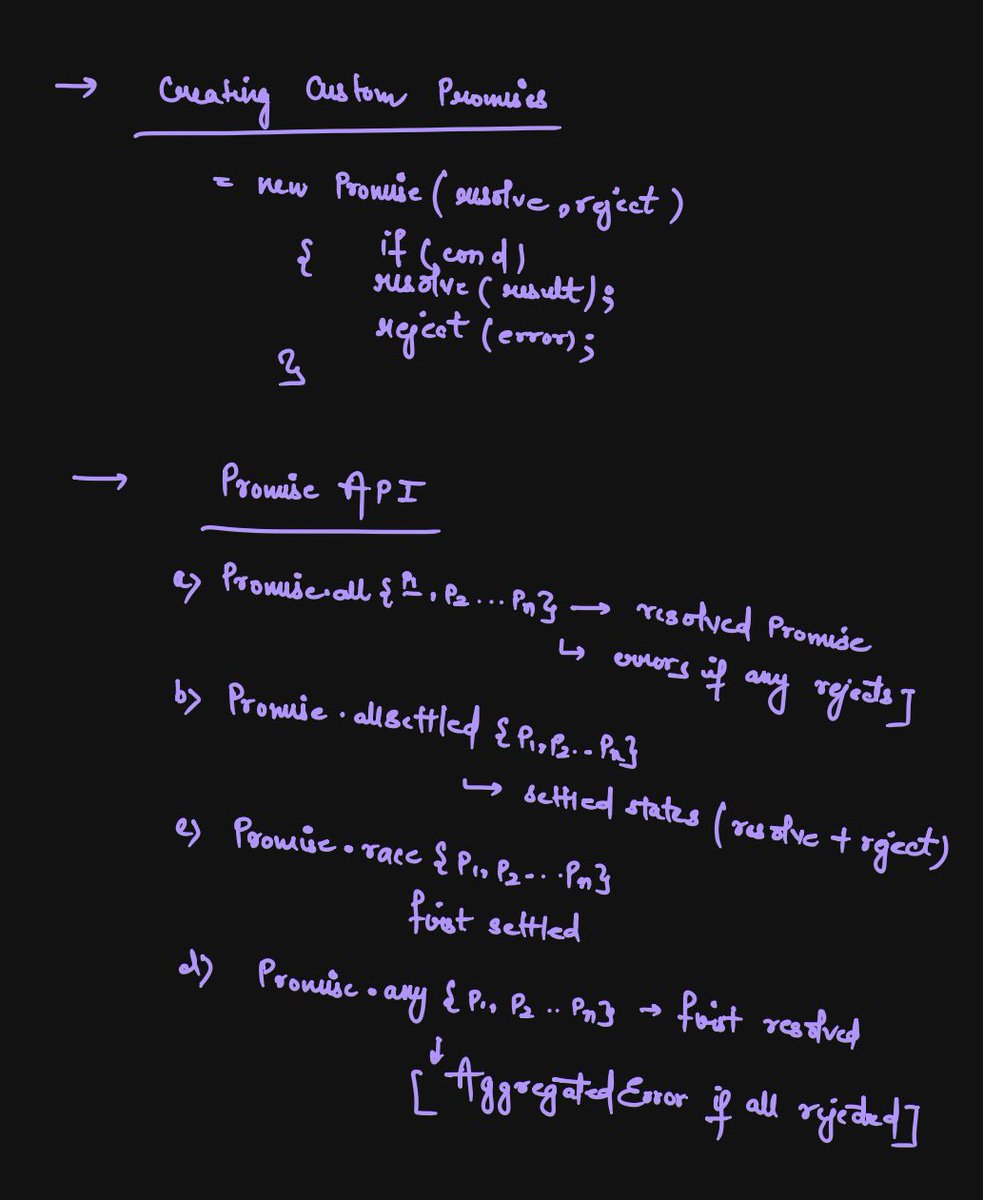 → Creating Custom Promises
= new Promise (resolve, reject)
{ if (cond)
resolve (result);
reject (error);
}
→ Promise API
a) Promise.all {P1, P2 ... Pn} → resolved Promise
↳ errors if any rejects]
b) Promise.allsettled {P1, P2 .. Pn}
↳ settled states (resolve + reject)
c) Promise.race {P1, P2 ... Pn}
first settled
d) Promise.any {P1, P2 .. Pn} → first resolved
↓
[AggregatedError if all rejected]